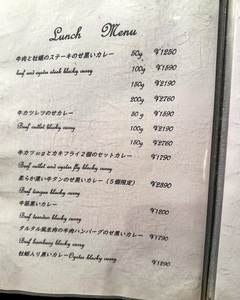 Lunch Menu
牛肉と牡蠣のステーキのせ黒いカレー 50g ¥1250
beef and oyster steak blacky curry 100g ¥1590
150g ¥2190
200g ¥2760
牛カツレツのせカレー 50g ¥1590
Beef cutlet blacky curry 100g ¥2190
150g ¥2760
牛カツ50gとカキフライ2個のセットカレー ¥1790
Beef cutlet and oyster fly blacky curry
柔らか濃い牛タンのせ黒いカレー（5個限定） ¥2390
Beef tongue blacky curry
牛筋黒いカレー ¥1200
Beef tendon blacky curry
タルタル風生肉の牛肉ハンバーグのせ黒いカレー ¥1790
Beef hamburg blacky curry
牡蠣入り黒いカレーOyster blacky curry ¥1290